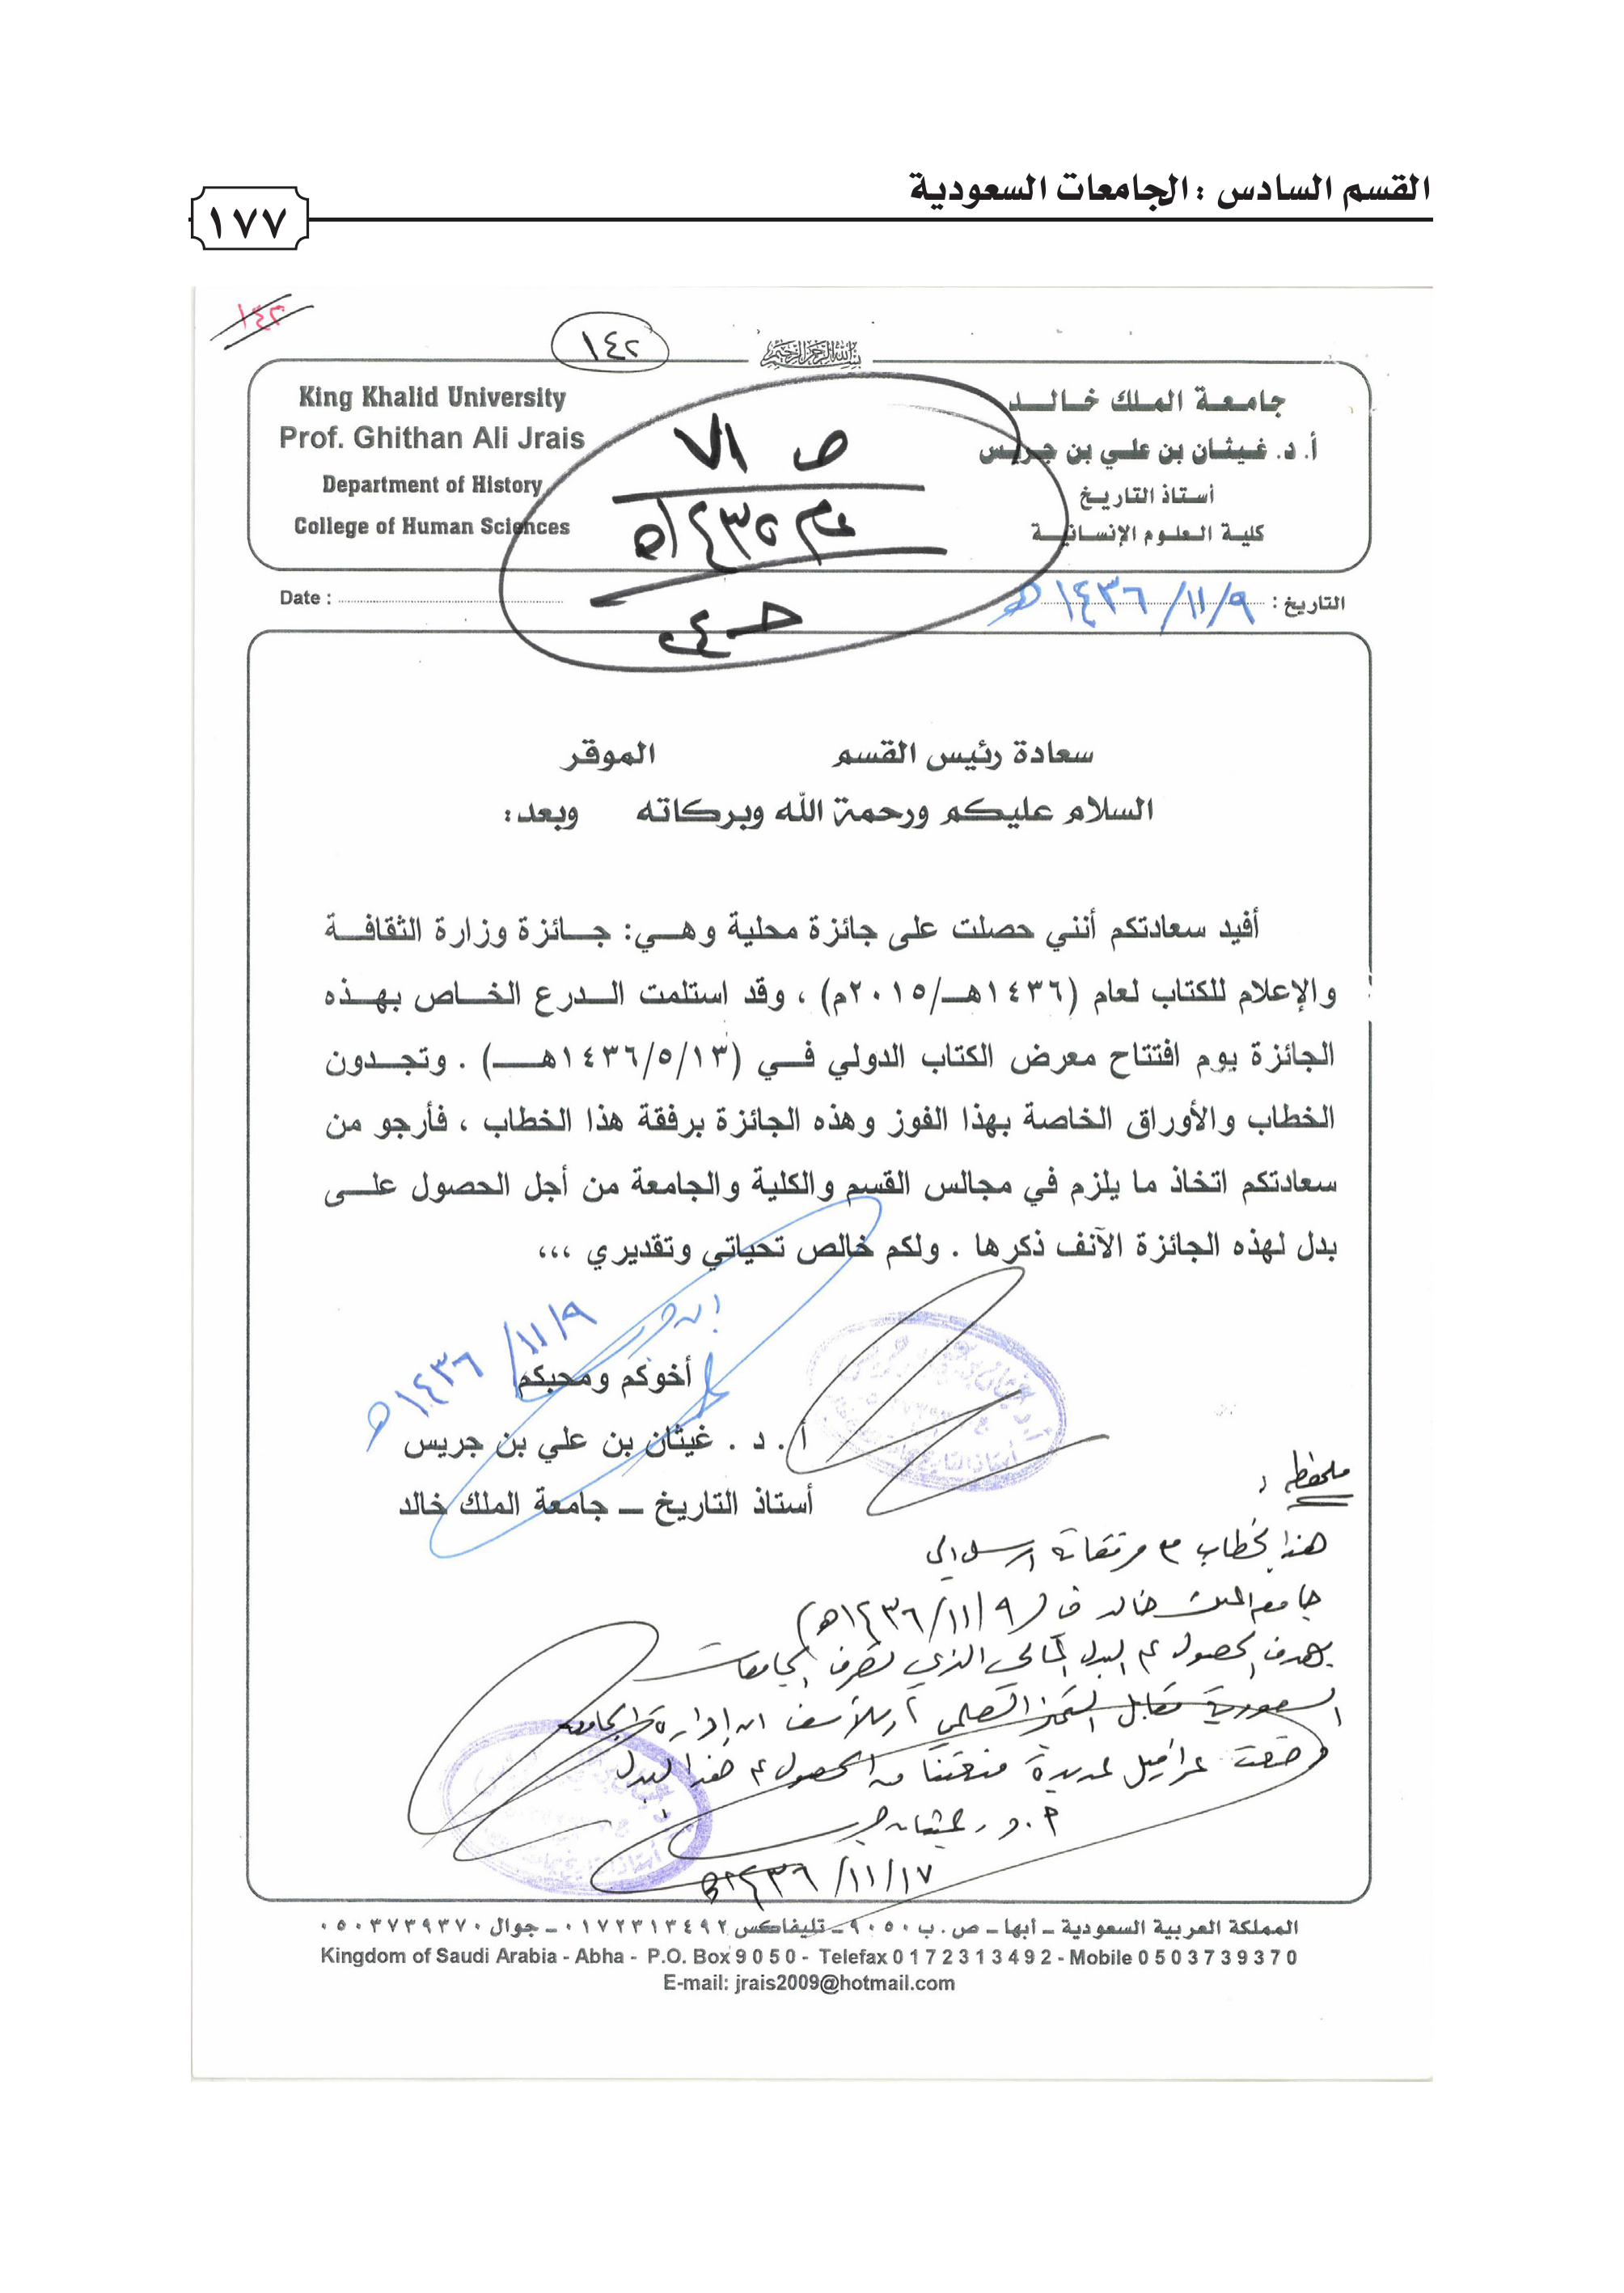 القسم السادس : الجامعات السعودية
١٧٧
١٤٢
١٤٢
بسم الله الرحمن الرحيم
King Khalid University
Prof. Ghithan Ali Jrais
Department of History
College of Human Sciences
جامعة الملك خالد
أ. د. غيثان بن علي بن جريس
أستاذ التاريخ
كلية العلوم الإنسانية
ص ٧١
Date :
التاريخ : ٩/١١/١٤٣٦هـ
سعادة رئيس القسم الموقر
السلام عليكم ورحمة الله وبركاته وبعد:
أفيد سعادتكم أنني حصلت على جائزة محلية وهي: جائزة وزارة الثقافة
والإعلام للكتاب لعام (١٤٣٦هـ/٢٠١٥م) ، وقد استلمت الدرع الخاص بهذه
الجائزة يوم افتتاح معرض الكتاب الدولي في (١٤٣٦/٥/١٣هـ) . وتجدون
الخطاب والأوراق الخاصة بهذا الفوز وهذه الجائزة برفقة هذا الخطاب ، فأرجو من
سعادتكم اتخاذ ما يلزم في مجالس القسم والكلية والجامعة من أجل الحصول على
بدل لهذه الجائزة الآنف ذكرها . ولكم خالص تحياتي وتقديري ،،،
٩/١١/١٤٣٦هـ
أخوكم ومحبكم
أ . د . غيثان بن علي بن جريس
أستاذ التاريخ ــ جامعة الملك خالد
ملحظه :
هذا الخطاب مع مرفقاته ارسل الى
جامعة الملك خالد في (٩/١١/١٤٣٦هـ)
بهدف الحصول على البدل المالي الذي تصرفه الجامعات
السعودية مقابل التميز العلمي ، وللأسف ان إدارة الجامعة
وضعت عراقيل عديدة منعتنا من الحصول على هذا البدل
أ.د. غيثان جريس
١٧/١١/١٤٣٦هـ
المملكة العربية السعودية ــ أبها ــ ص . ب ٩٠٥٠ ــ تليفاكس ٠١٧٢٣١٣٤٩٢ ــ جوال ٠٥٠٣٧٣٩٣٧٠
Kingdom of Saudi Arabia - Abha - P.O. Box 9 0 5 0 - Telefax 0 1 7 2 3 1 3 4 9 2 - Mobile 0 5 0 3 7 3 9 3 7 0
E-mail: jrais2009@hotmail.com